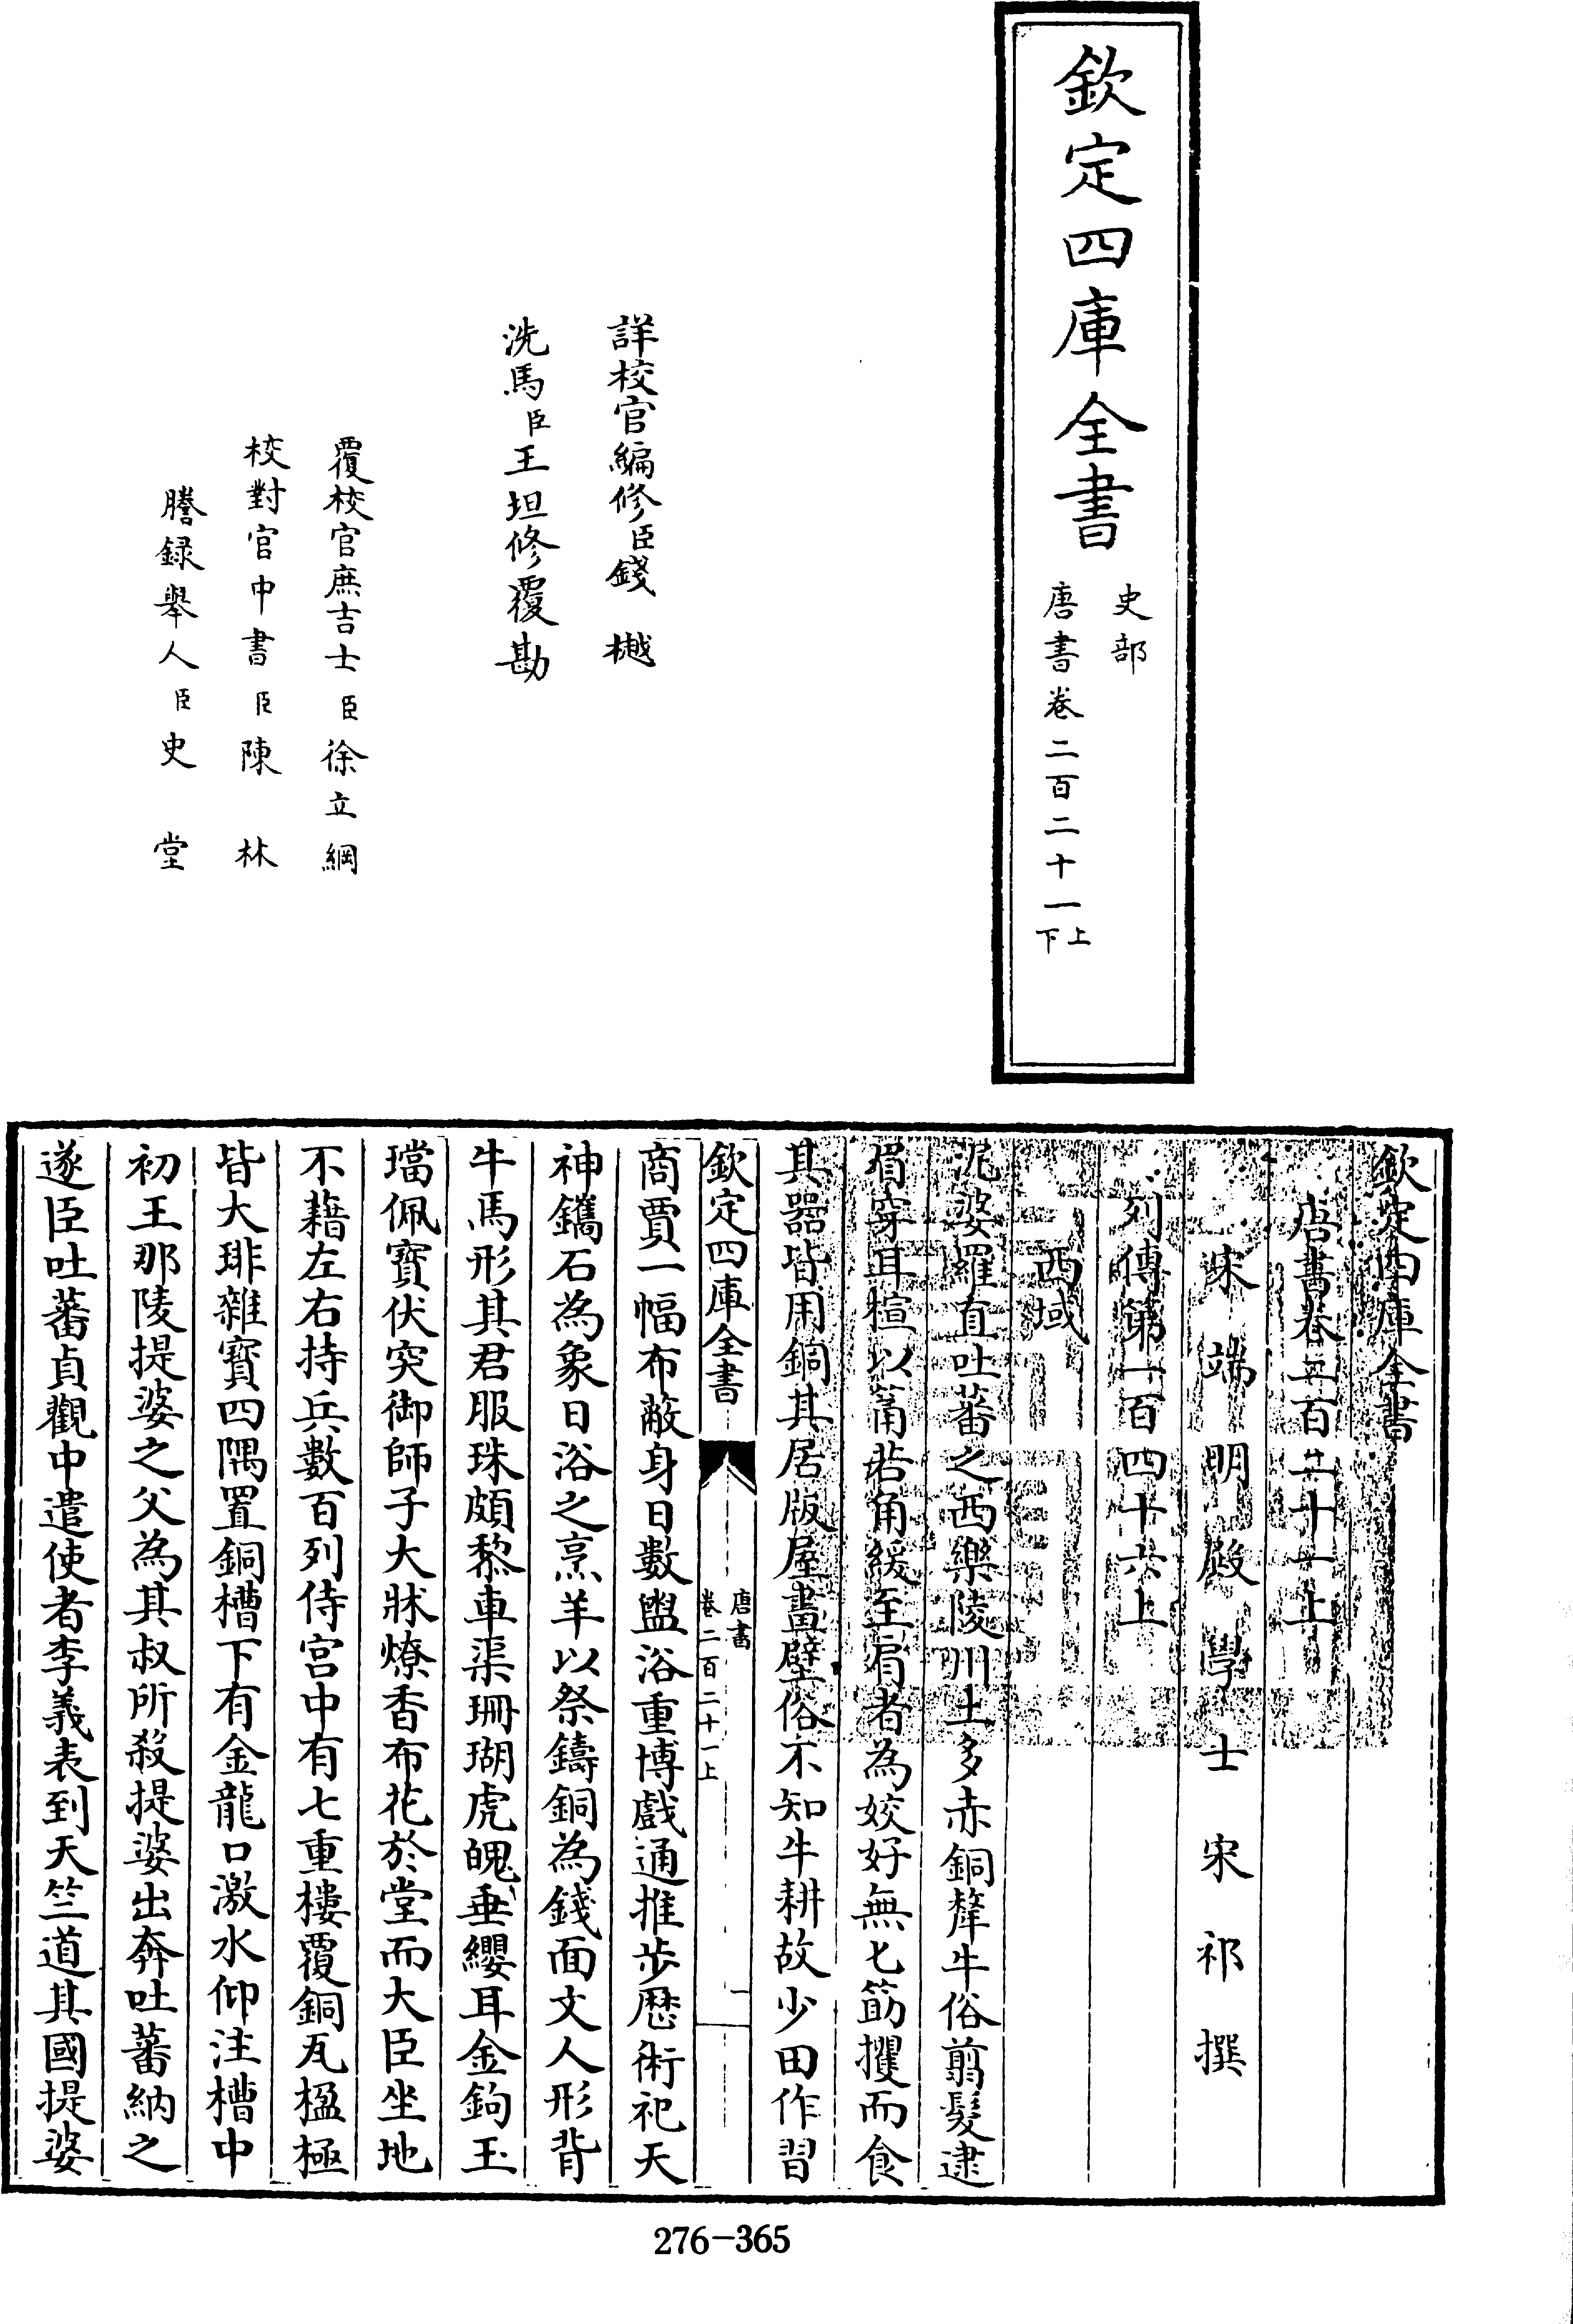 欽定四庫全書
史部
唐書卷二百二十一上下
詳校官編修臣錢樾
洗馬臣王坦修覆勘
覆校官庶吉士臣徐立綱
校對官中書臣陳林
謄録舉人臣史堂
欽定四庫全書
唐書卷二百二十一上
宋端明殿學士宋祁撰
列傳第一百四十六上
西域
泥婆羅直吐蕃之西樂陵川土多赤銅犛牛俗翦髮逮
眉穿耳楦以筩若角緩至肩者為姣好無匕筯攫而食
其器皆用銅其居版屋畫壁俗不知牛耕故少田作習
欽定四庫全書
唐書
卷二百二十一上
一
商賈一幅布蔽身日數盥浴重博戲通推步厯術祀天
神鐫石為象日浴之烹羊以祭鑄銅為錢面文人形背
牛馬形其君服珠頗黎車渠珊瑚虎魄垂纓耳金鉤玉
璫佩寶伏突御師子大牀燎香布花於堂而大臣坐地
不藉左右持兵數百列侍宮中有七重樓覆銅瓦楹極
皆大琲雜寶四隅置銅槽下有金龍口激水仰注槽中
初王那陵提婆之父為其叔所殺提婆出奔吐蕃納之
遂臣吐蕃貞觀中遣使者李義表到天竺道其國提婆
276-365